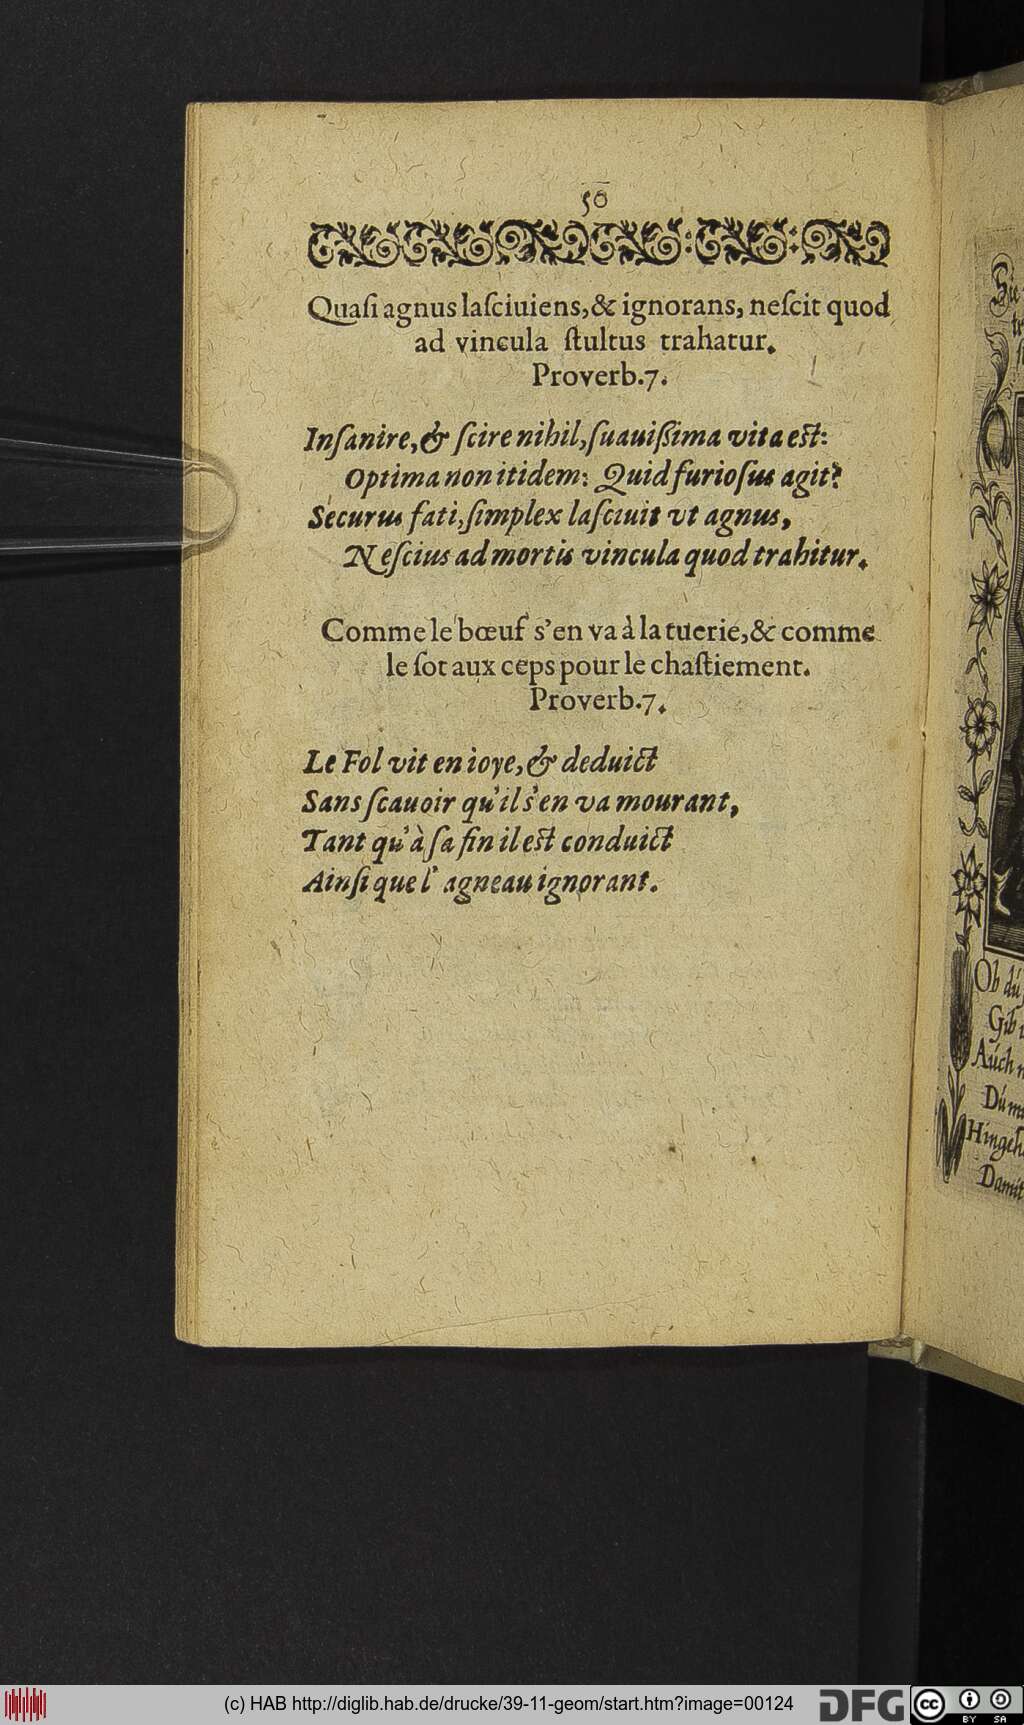 50
Quaſi agnus laſciuiens, & ignorans, neſcit quod
ad vincula ſtultus trahatur.
Proverb. 7.
Inſanire, & ſcire nihil, ſuauißima vita est:
Optima non itidem: Quid furioſus agit?
Securus fati, ſimplex laſciuit vt agnus,
Neſcius ad mortis vincula quod trahitur.
Comme le bœuf s'en va à la tuerie, & comme
le ſot aux ceps pour le chaſtiement.
Proverb. 7.
Le Fol vit en ioye, & deduict
Sans ſcauoir qu'il s'en va mourant,
Tant qu'à ſa fin il est conduict
Ainſi que l' agneau ignorant.
Sie
Ob dú
Gib
Aúch
Dú
Damit
(c) HAB http://diglib.hab.de/drucke/39-11-geom/start.htm?image=00124
DFG
cc
BY SA